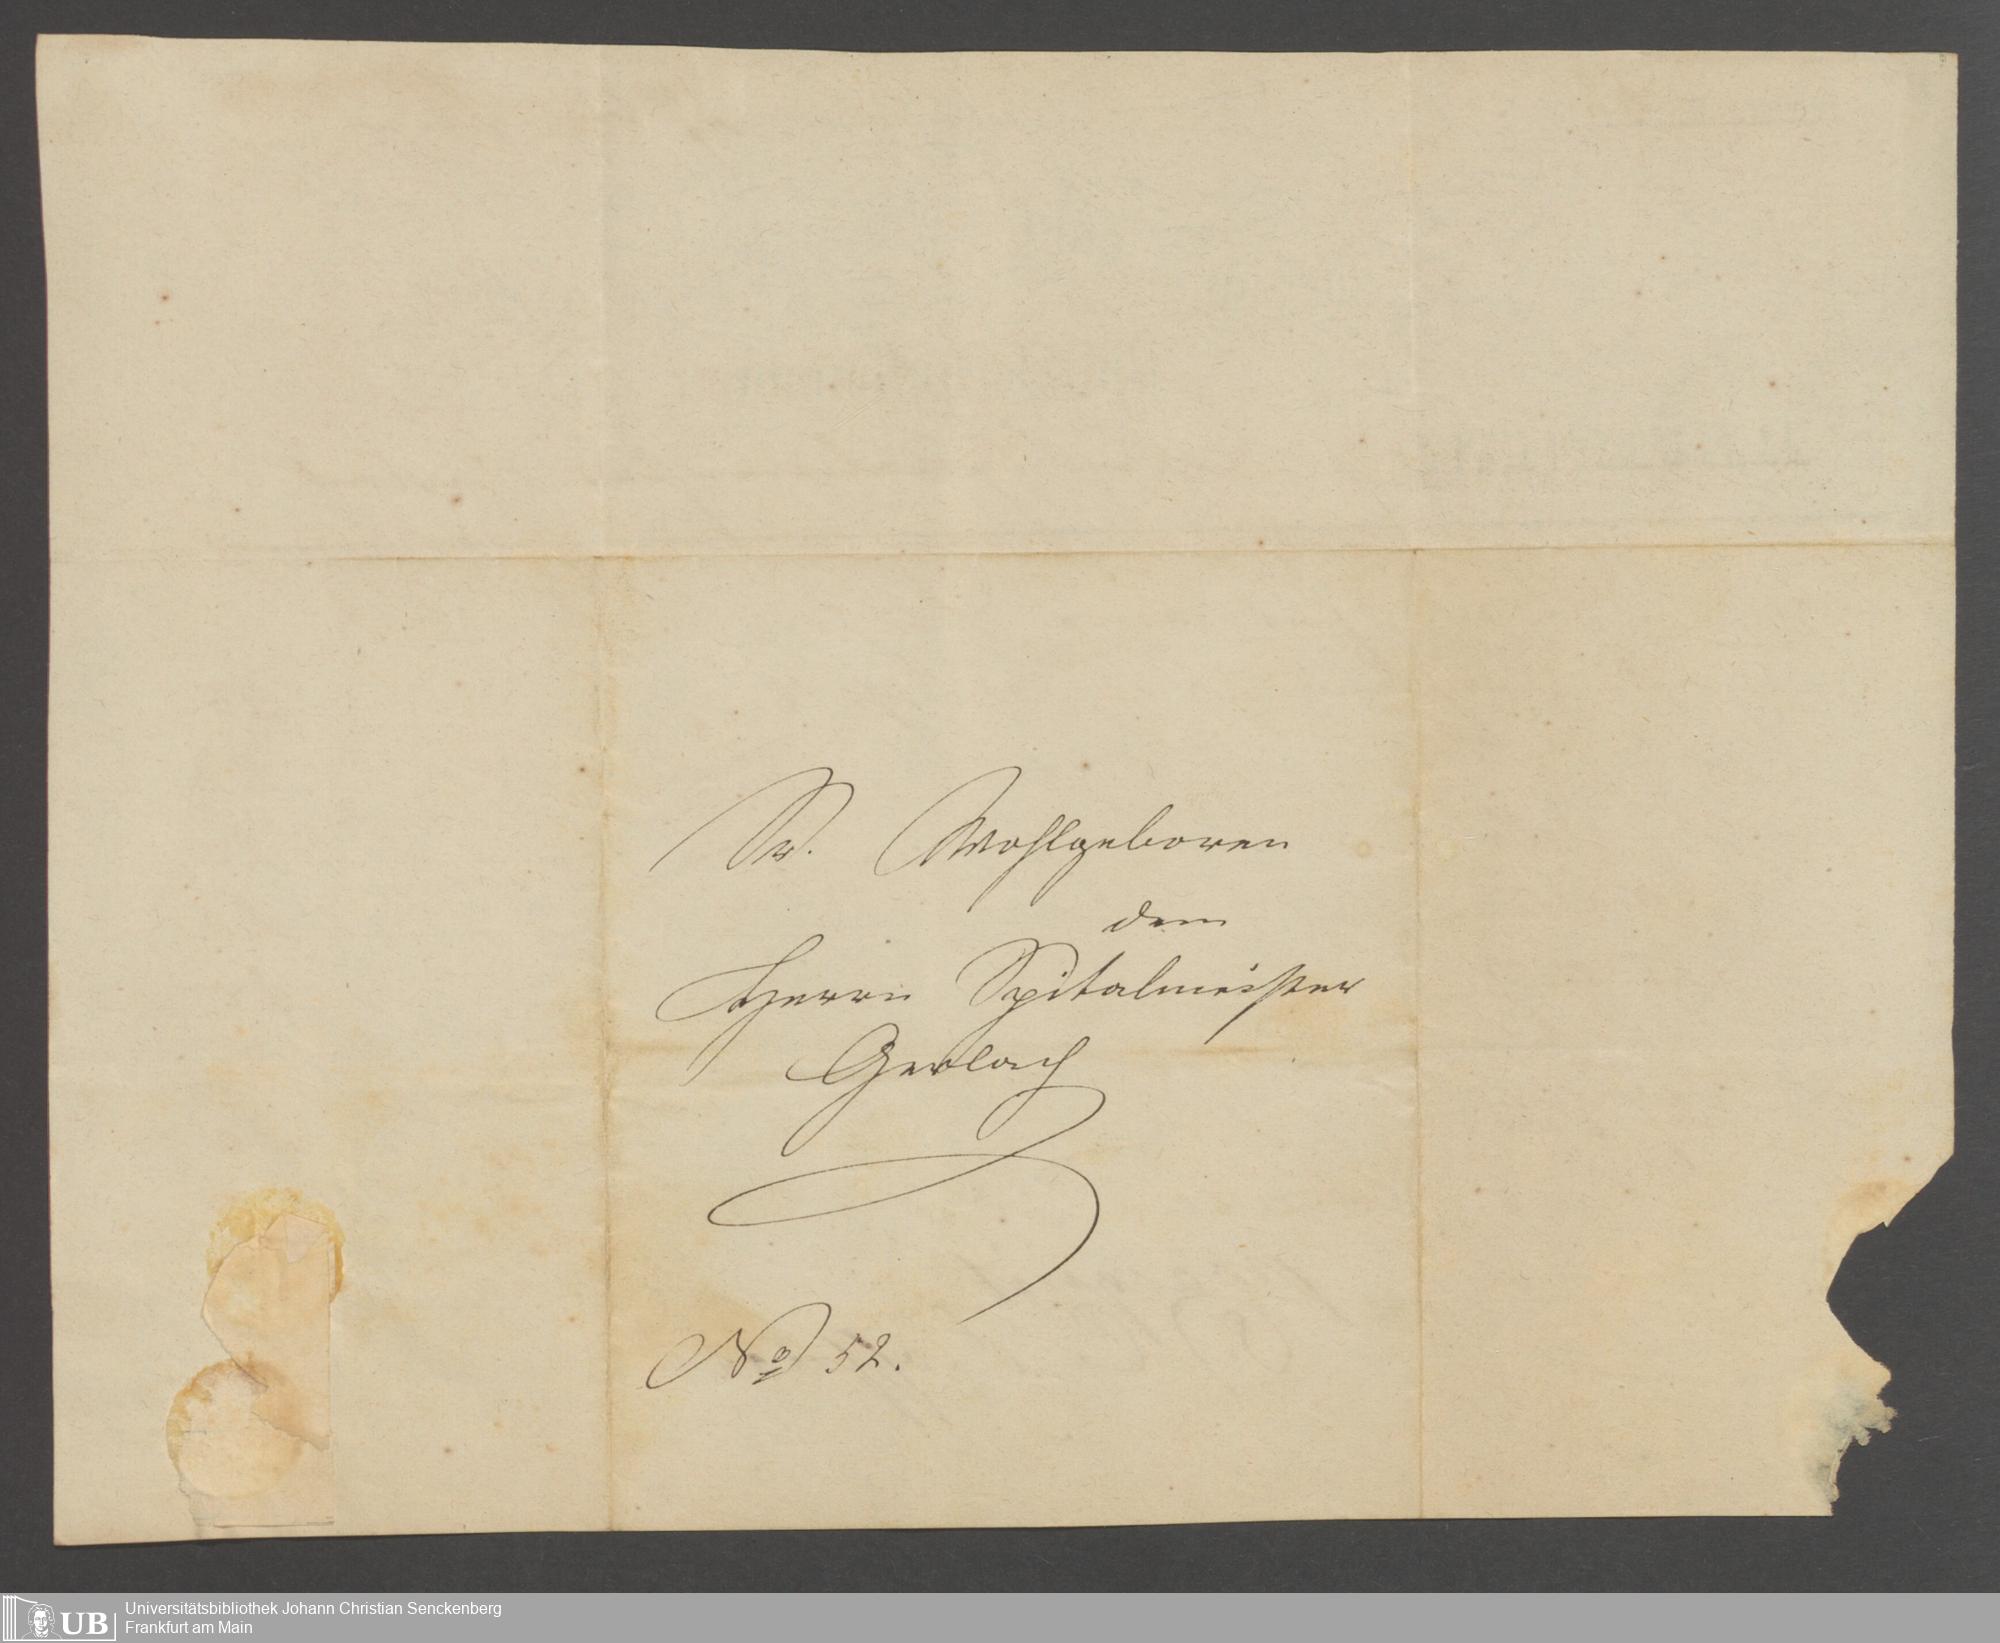 Sr. Wohlgeboren
dem
Herrn Spitalmeister
Gerlach
No 52.
UB
Universitätsbibliothek Johann Christian Senckenberg
Frankfurt am Main